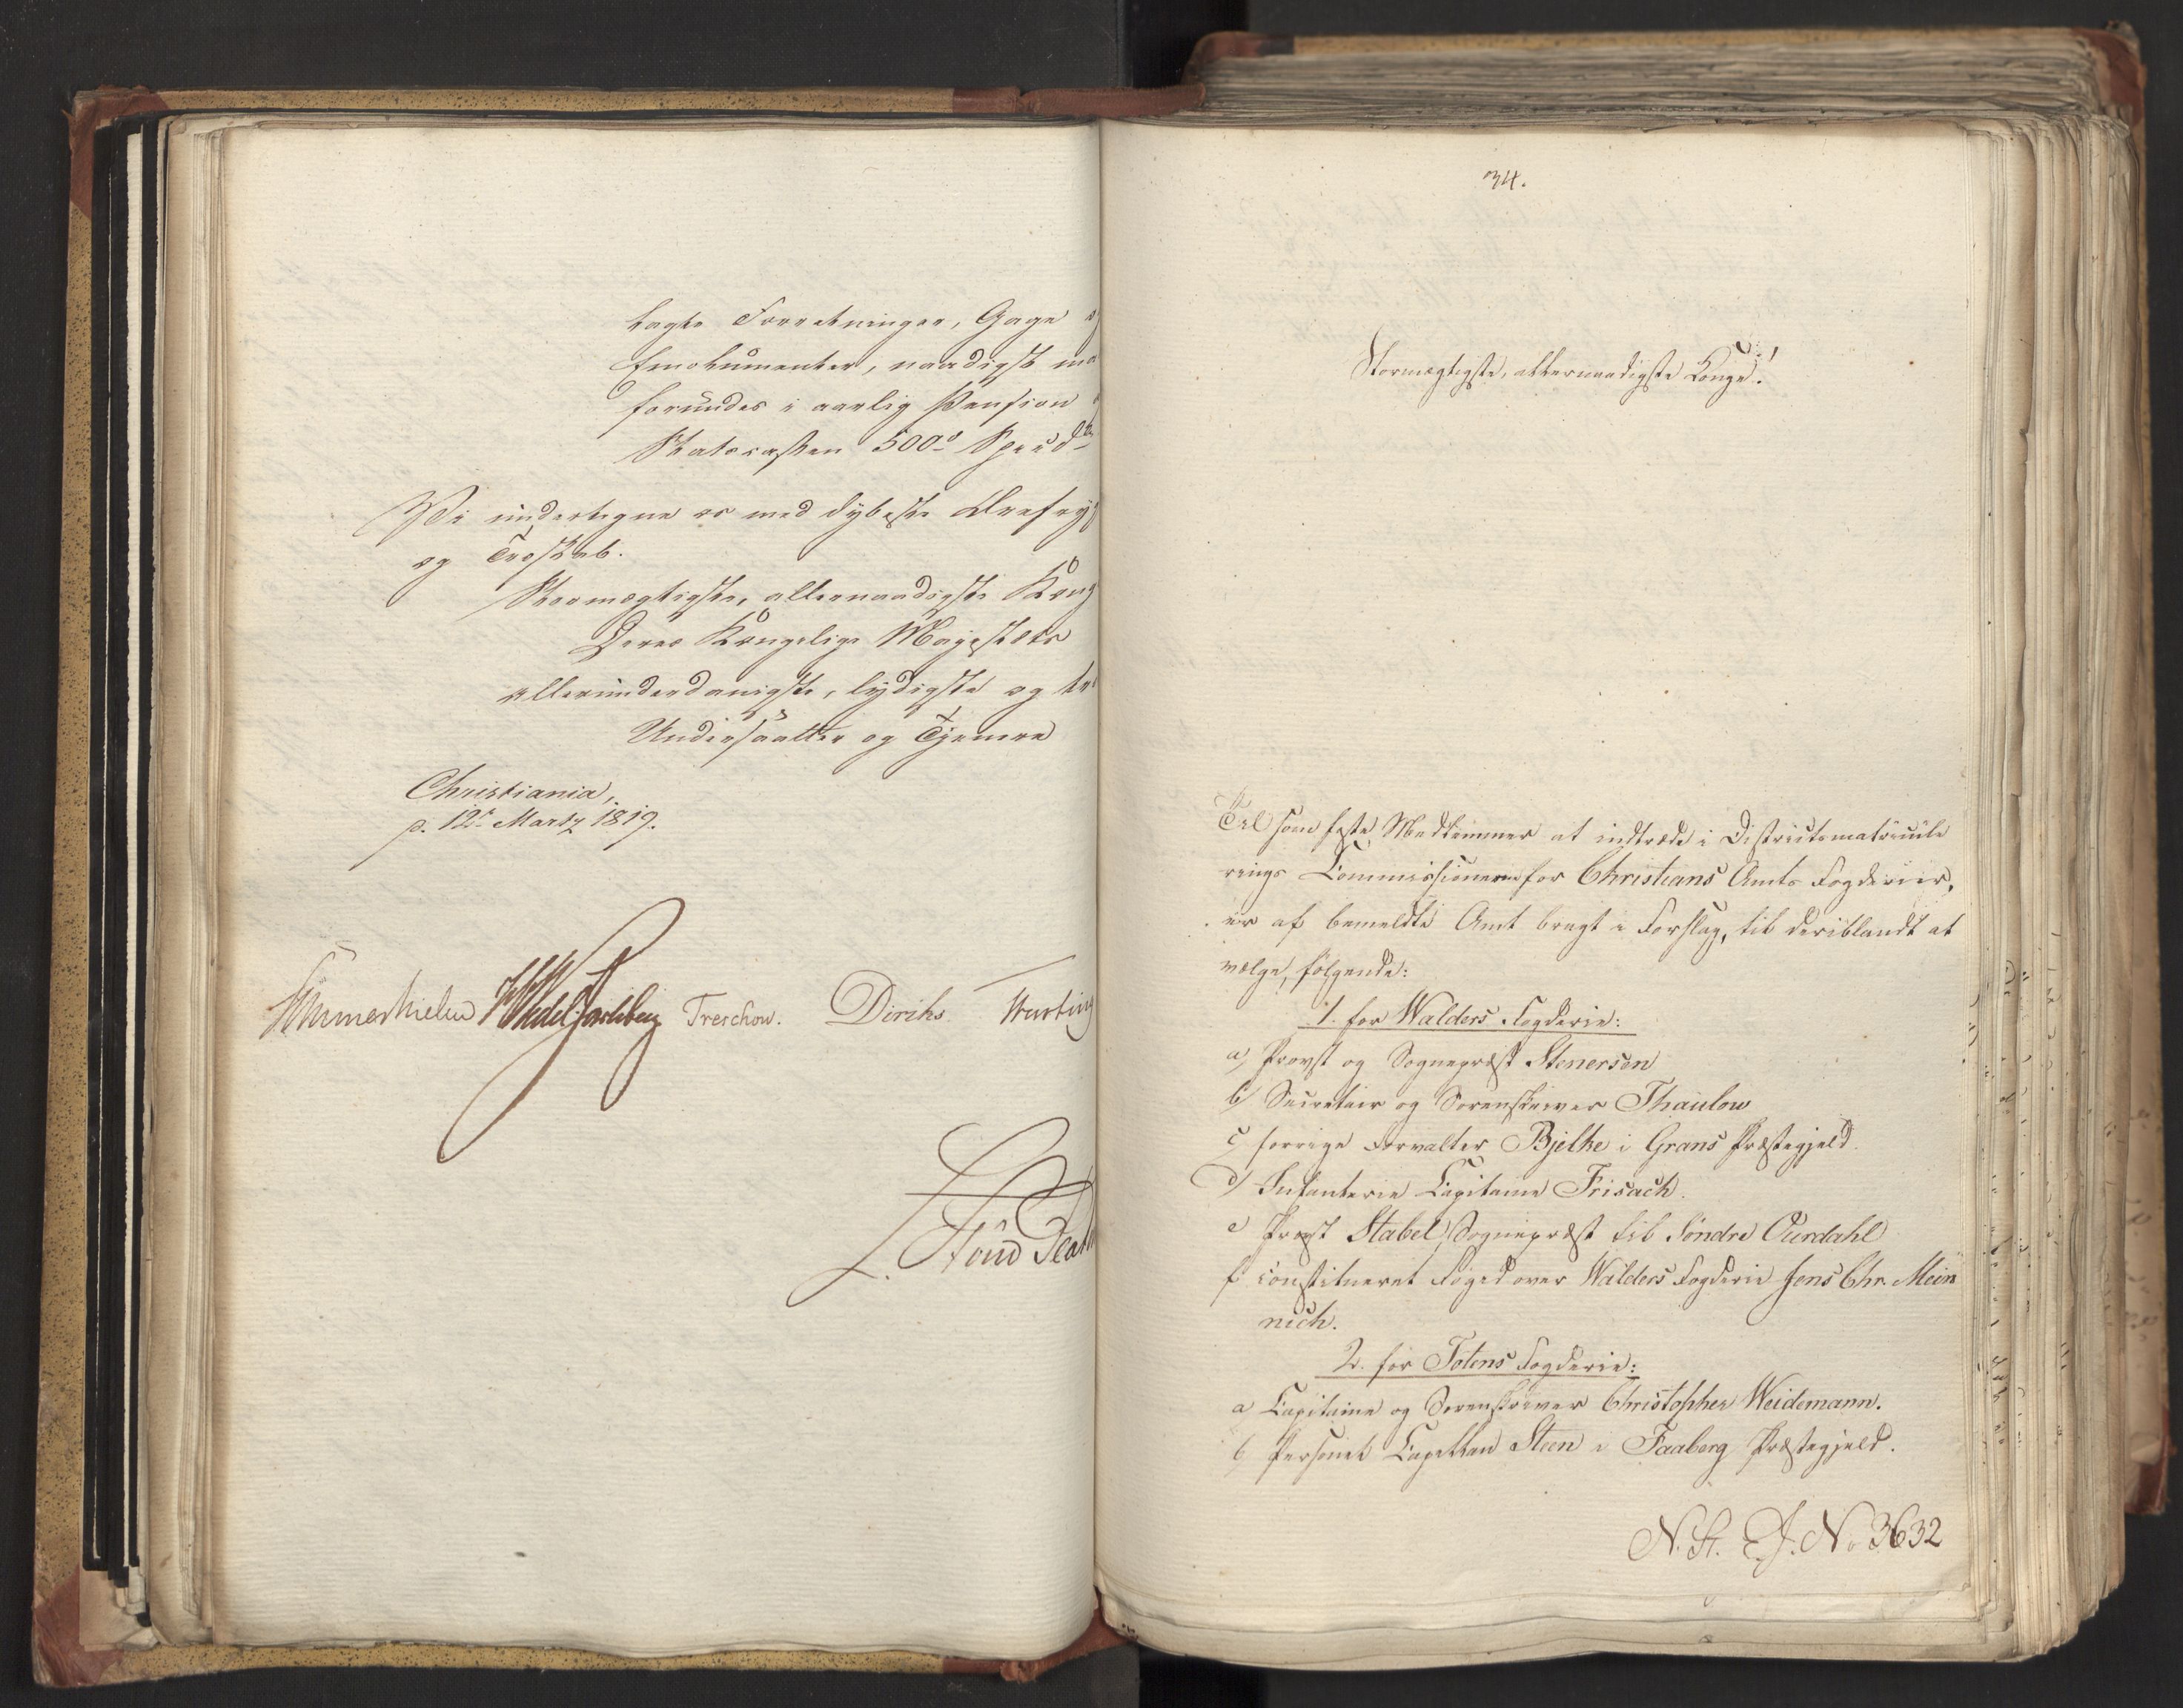 tagte Forretninger, Gage
Emolumenter, naadigst
forundes i aarlig Pension
Statscassen 500 Specd
Vi undertegne os med dybeste Ærefryg
og Troskab.
Stormægtigste, allernaadigste Kong
Deres Kongelige Majestæts
allerunderdanigste, lydigste og
Undersaatter og Tjenere
Christiania,
d. 12te Martz 1819.
Sommerhielm HWedel Jarlsberg Treschow. Diriks
34.
Stormægtigste, allernaadigste Konge!
Til som faste Medlemmer at indtræde i Districtsmatricule
rings Commissionerne for Christians Amts Fogderier,
er af bemeldte Amt bragt i Forslag, til deriblandt at
vælge, følgende:
1. for Walders Fogderie:
a, Provst og Sognepræst Stenersen
b, Secretair og Sorenskriver Thaulow
c, forrige Forvalter Bjelke i Grans Præstegjeld.
d, Infanterie Capitaine Frisach.
e Provst Stabel, Sognepræst til Søndre Ourdahl
f constitueret Foged over Walders Fogderie Jens Chr. Mein
nich.
2. for Totens Fogderie:
a Capitaine og Sorenskriver Christopher Weidemann.
b, Personel Capellan Steen i Faaberg Præstegjeld.
N. St. J. No 3632